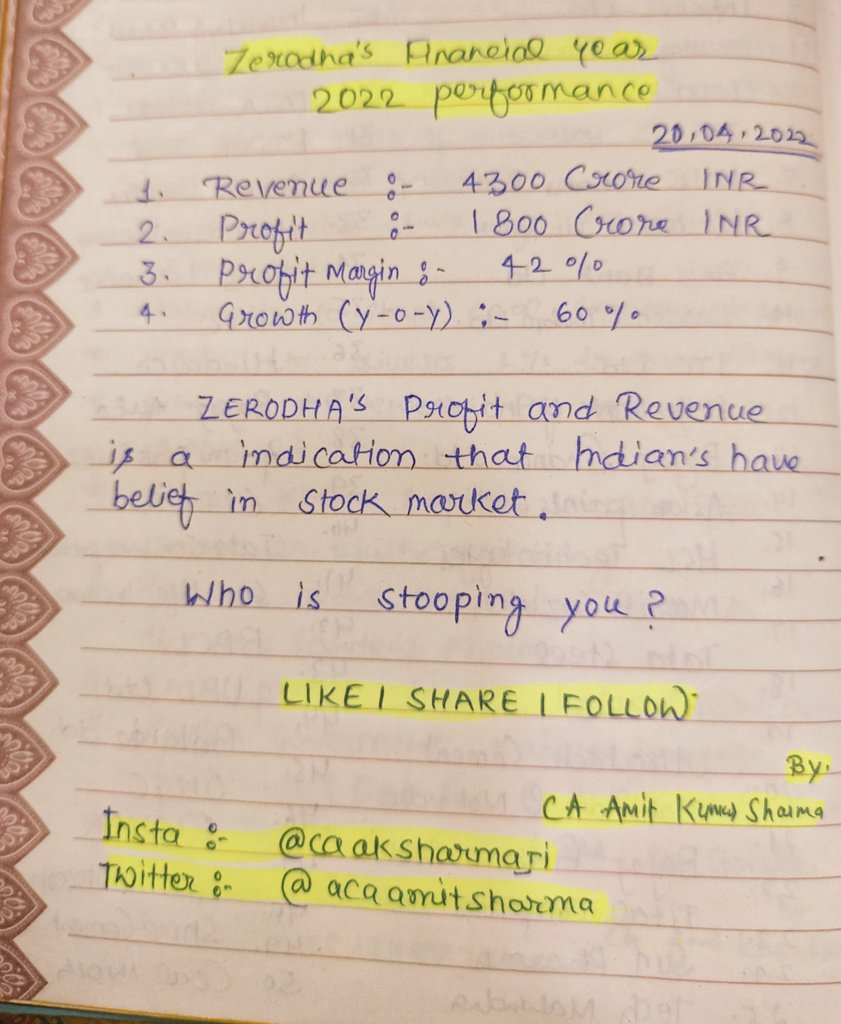 Zerodha's Financial year
2022 performance
20.04.2022
1. Revenue :- 4300 Crore INR
2. Profit :- 1800 Crore INR
3. Profit Margin :- 42 %
4. Growth (Y-O-Y) :- 60 %
ZERODHA's Profit and Revenue
is a indication that Indian's have
belief in stock market.
Who is stooping you?
LIKE | SHARE | FOLLOW
By:
CA Amit Kumar Sharma
Insta :- @caaksharmaji
Twitter :- @acaamitsharma